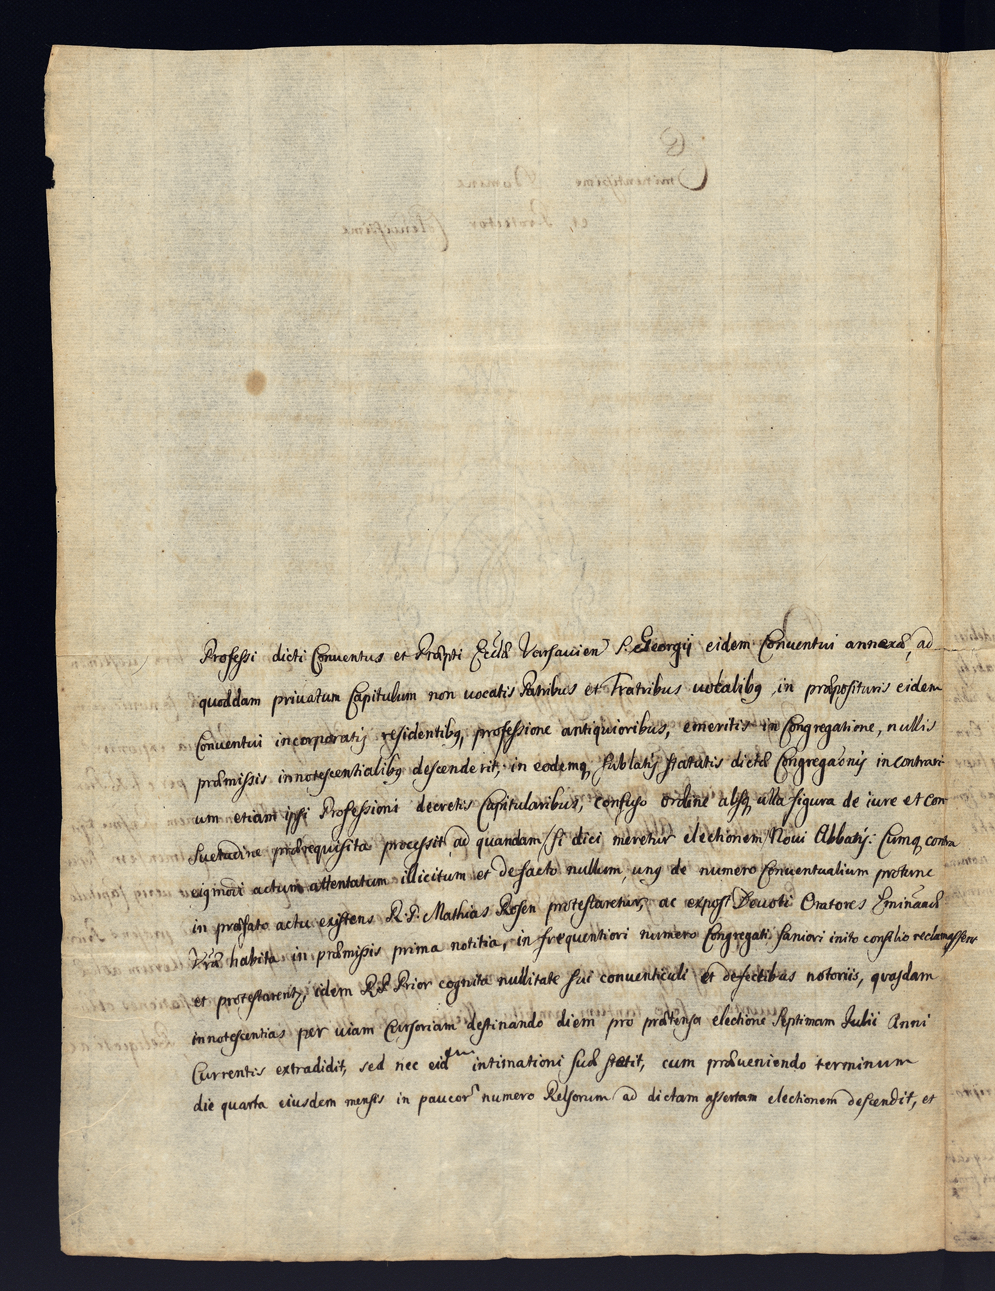 Professi dicti Conventus et Praepti Ecctae Varsavien S. Georgij eidem Conventui annexae, ad
quoddam privatum Capitulum non vocatis Patribus et Fratribus vocalibq, in praeposituris eidem
Conventui incorporatis residentibq, professione antiquioribus, emeritis in Congregatione, nullis
praemissis innotescentialibq descenderit, in eodemq, sublatis statutis dictae Congregaonis in contrari
um etiam ipsi Professioni decretis Capitularibus, confuso ordine absq ulla figura de iure et con
suetudine praerequisita processit ad quandam /si dici meretur electionem/ Novi Abbatis. Cumq contra
eiqmodi actum attentatum illicitum et defacto nullum, unq de numero Conventualium protunc
in praefato actu existens R. P. Mathias Rosen protestaretur, ac expost Devoti Oratores Eminaae
Vrae habita in praemissis prima notitia, in frequentiori numero Congregati, saniori inito consilio reclamassent
et protestarentq, idem R. P. Prior cognita nullitate sui conventiculi et defectibus notoriis, quasdam
innotescentias per viam Cursoriam destinando diem pro praetensa electione Septimam Julii Anni
Currentis extradidit, sed nec eid intimationi suae stetit, cum praeveniendo terminum
die quarta eiusdem mensis in paucor numero Relsorum ad dictam assertam electionem descendit, et